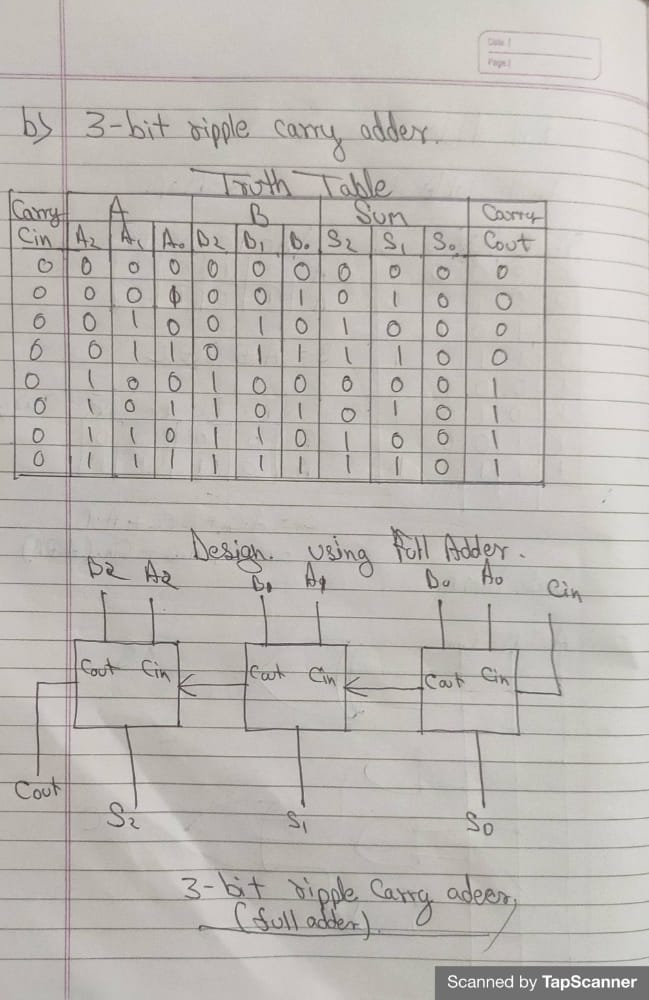 Date /
Page /
b) 3-bit ripple carry adder.
Truth Table
Carry A B Sum Carry
Cin A2 A1 A0 B2 B1 B0 S2 S1 S0 Cout
0 0 0 0 0 0 0 0 0 0 0
0 0 0 1 0 0 1 0 1 0 0
0 0 1 0 0 1 0 1 0 0 0
0 0 1 1 0 1 1 1 1 0 0
0 1 0 0 1 0 0 0 0 0 1
0 1 0 1 1 0 1 0 1 0 1
0 1 1 0 1 1 0 1 0 0 1
0 1 1 1 1 1 1 1 1 0 1
Design. using Full Adder.
B2 A2 B1 A1 B0 A0 Cin
Cout Cin Cout Cin Cout Cin
Cout S2 S1 S0
3-bit ripple Carry adeer,
(full adder).
Scanned by TapScanner